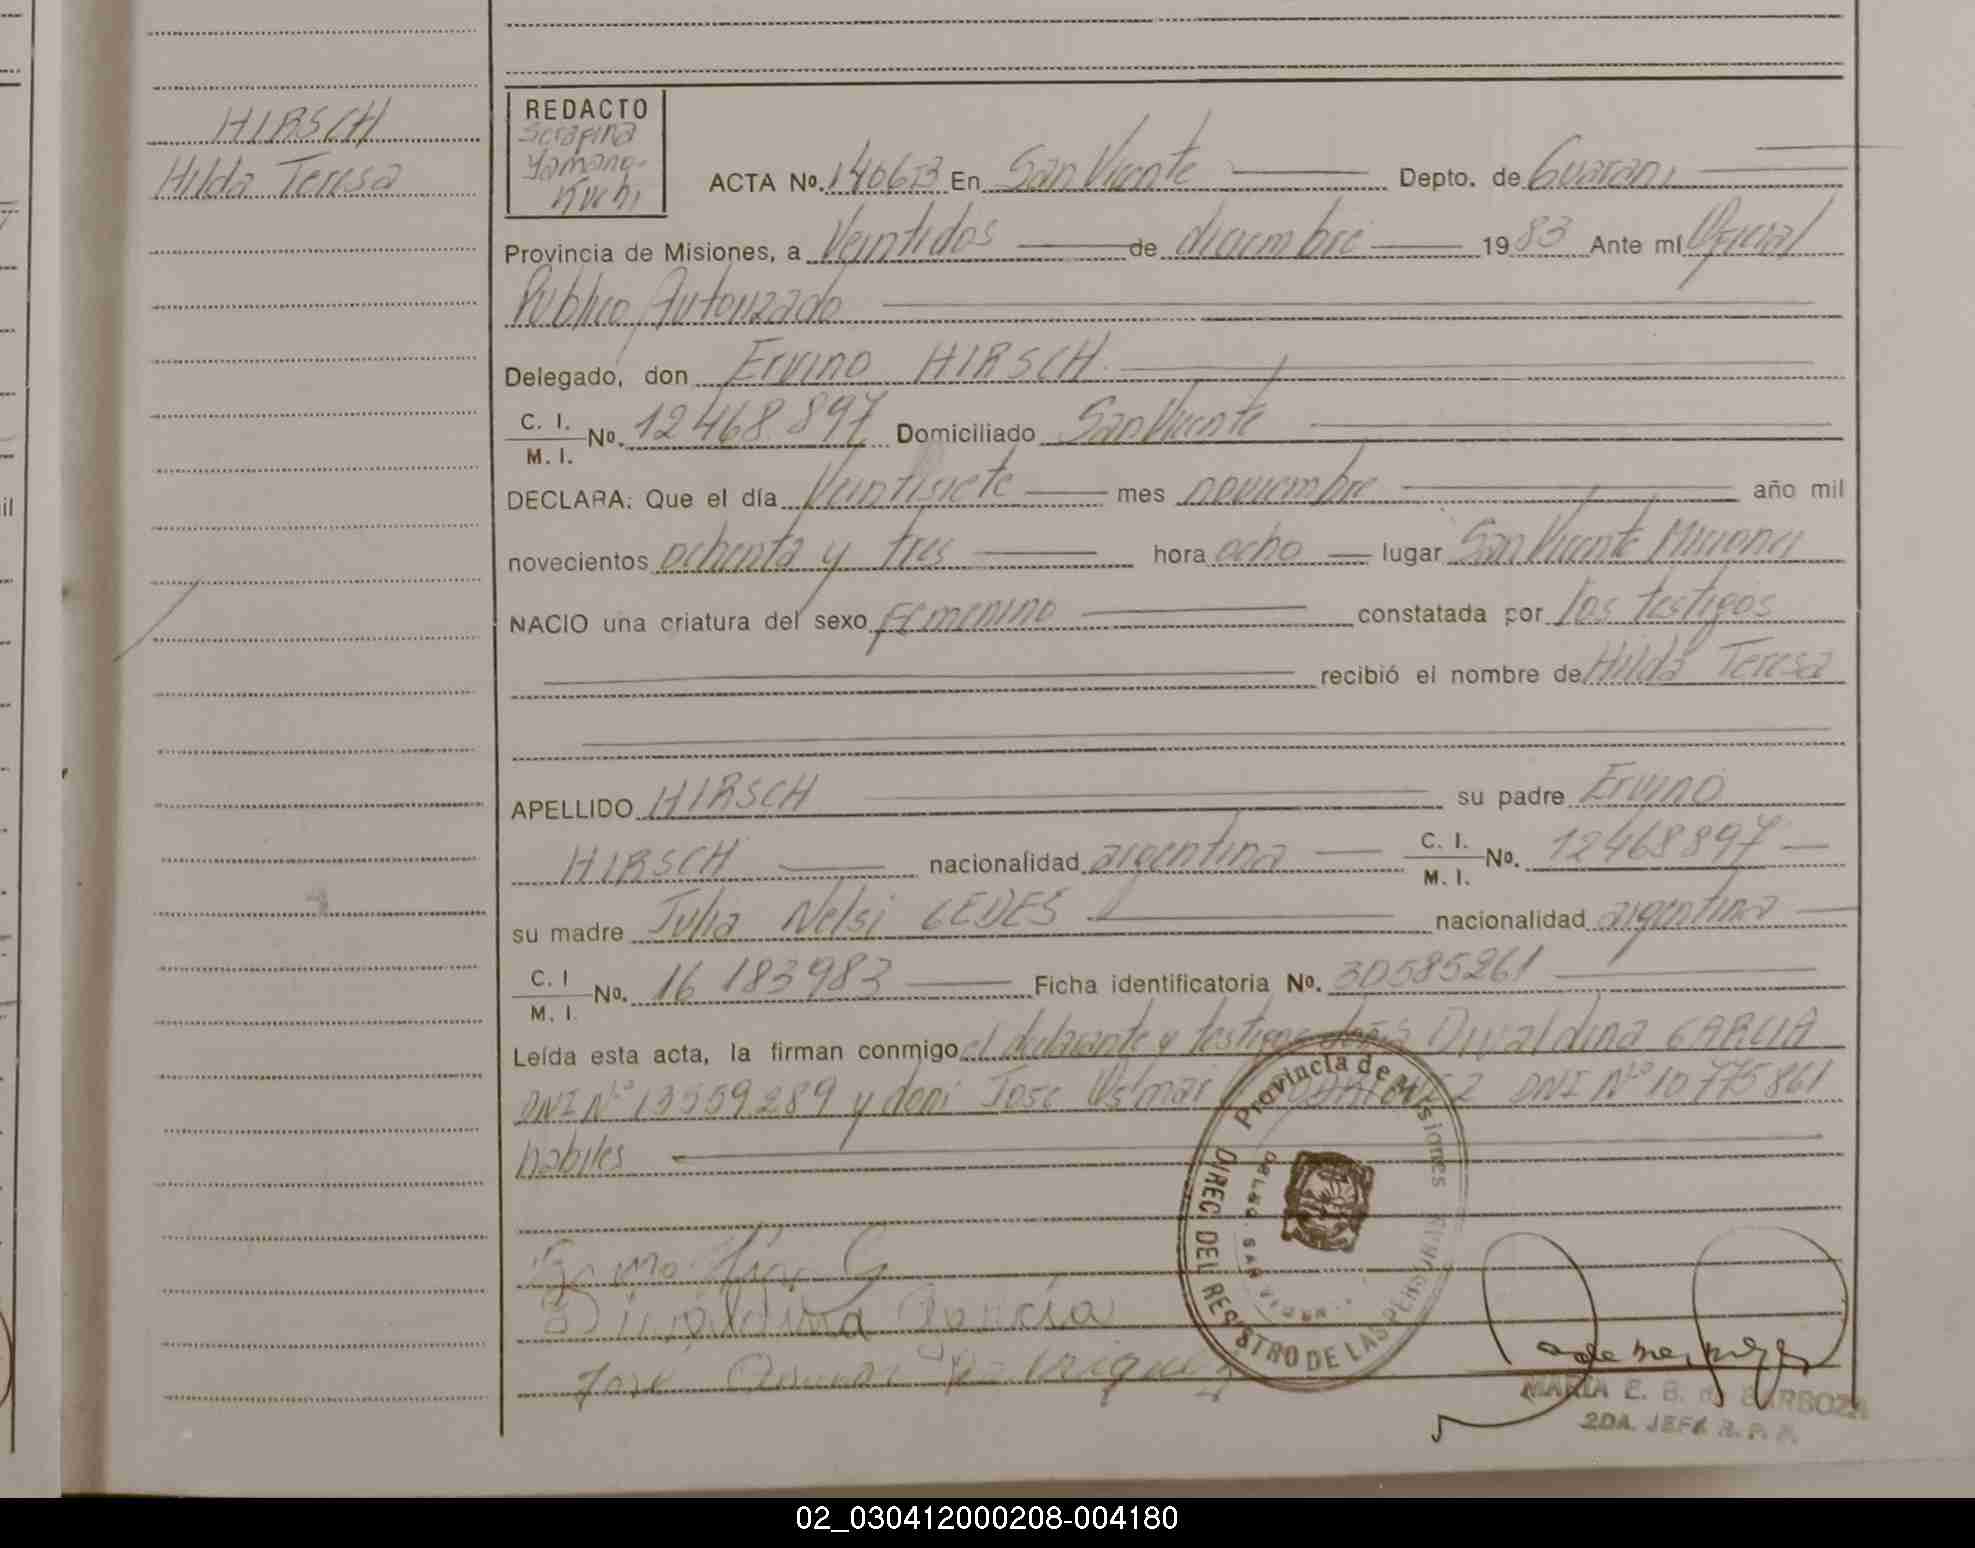 HIRSCH
Hilda Teresa
REDACTO
Serafina
Yamana-
Kuchi
ACTA No. 1406 En San Vicente Depto. de Guarani
Provincia de Misiones, a Veintidos de diciembre 1983 Ante mí Oficial
Publico Autorizado
Delegado, don Ervino HIRSCH
C. I.
M. I.
No. 12468897 Domiciliado San Vicente
DECLARA: Que el día Veintisiete mes noviembre año mil
novecientos ochenta y tres hora ocho lugar San Vicente Misiones
NACIO una criatura del sexo femenino constatada por los testigos
recibió el nombre de Hilda Teresa
APELLIDO HIRSCH su padre Ervino
HIRSCH nacionalidad argentina C. I.
M. I.
No. 12468897
su madre Julia Nelsi nacionalidad argentina
C. I
M. I.
No. 16 183983 Ficha identificatoria No. 30585261
Leída esta acta, la firman conmigo el declarante y testigos doña Divaldina GARCIA
DNI Nº 13559289 y don Jose DNI Nº 10775861
habiles
Divaldina Garcia
Jose
Provincia de Misiones
DIREC. DEL REGISTRO DE LAS PERSONAS
DELEG. SAN VICEN
MARIA E. B. de BARBOZA
2DA. JEFA R. P. P.
il
02_030412000208-004180